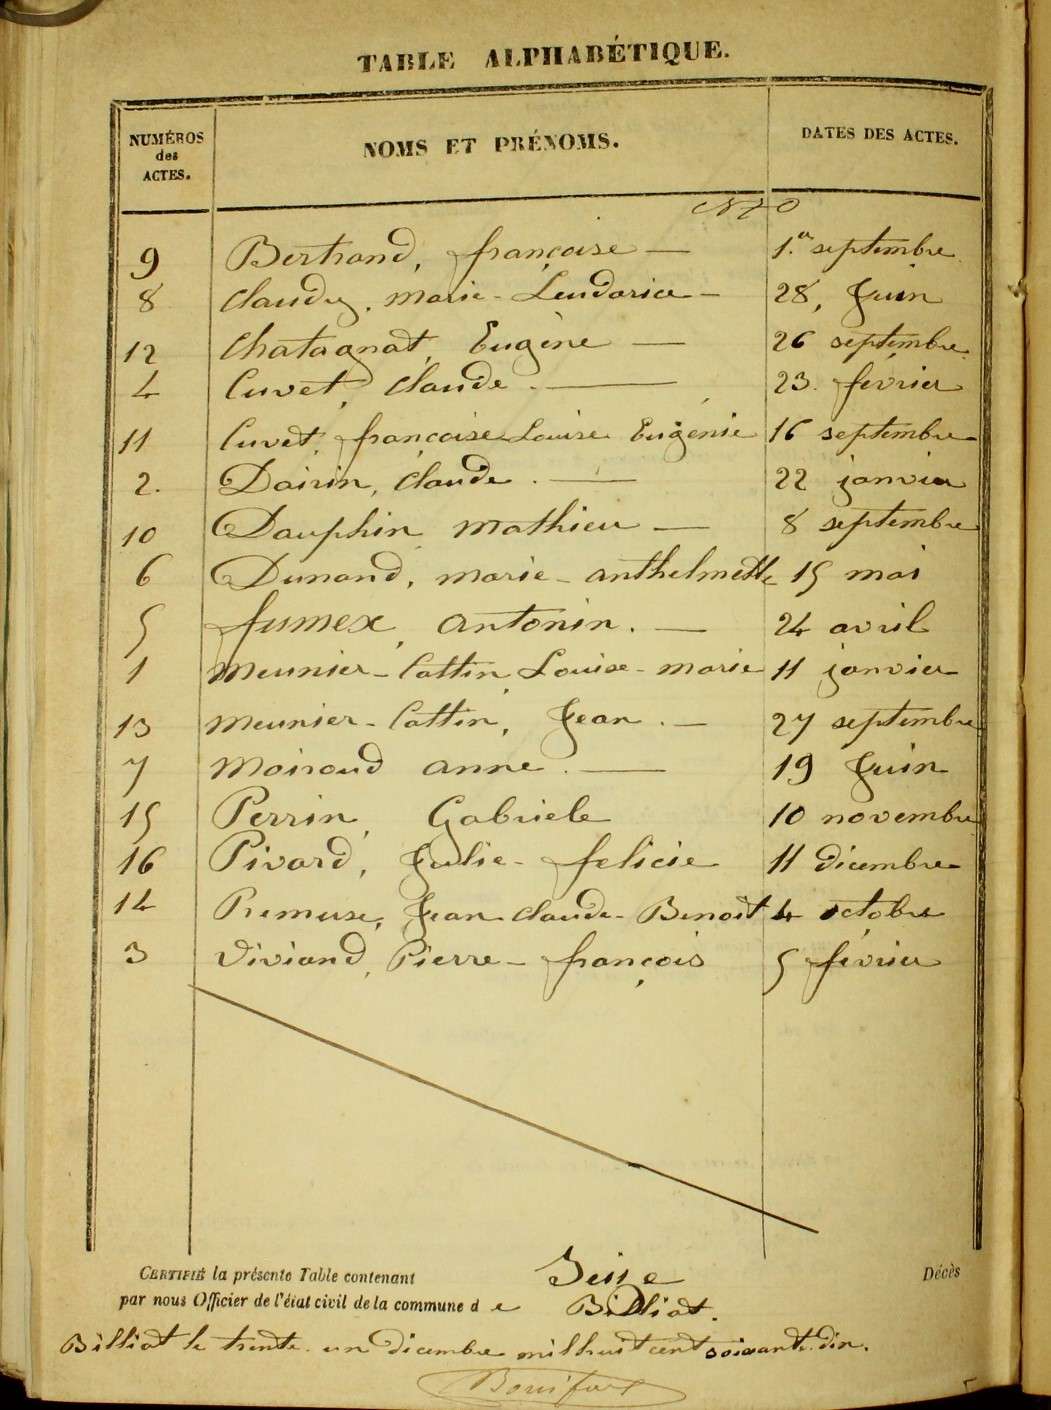 TABLE ALPHABÉTIQUE.
NUMÉROS des ACTES. NOMS ET PRÉNOMS. DATES DES ACTES.
9 Bertrand, françoise — 1.er septembre
8 Claudy, marie - — 28, Juin
12 Chatagnat, Eugène — 26 septembre
4 Cuvet, Claude. — 23. février
11 Cuvet, françoise Louise Eugénie 16 septembre
2. Dairin, Claude. — 22 janvier
10 Dauphin mathieu — 8 septembre
6 Dunand, marie - anthelmette 15 mai
5 fumex, antonin. — 24 avril
1 Meunier - Cattin, Louise - marie 11 janvier
13 Meunier - Cattin, Jean. — 27 septembre
7 Moiroud anne. — 19 Juin
15 Perrin, Gabriele 10 novembre
16 Pivard, Julie - felicie 11 dicembre
14 Premuse, Jean Claude - Benoit 4 octobre
3 Viviand, Pierre - françois 5 février
CERTIFIÉ la présente Table contenant Seise Décès
par nous Officier de l'état civil de la commune d e Billiat.
Billiat le trente un dicembre mil huit cent soixante dix.